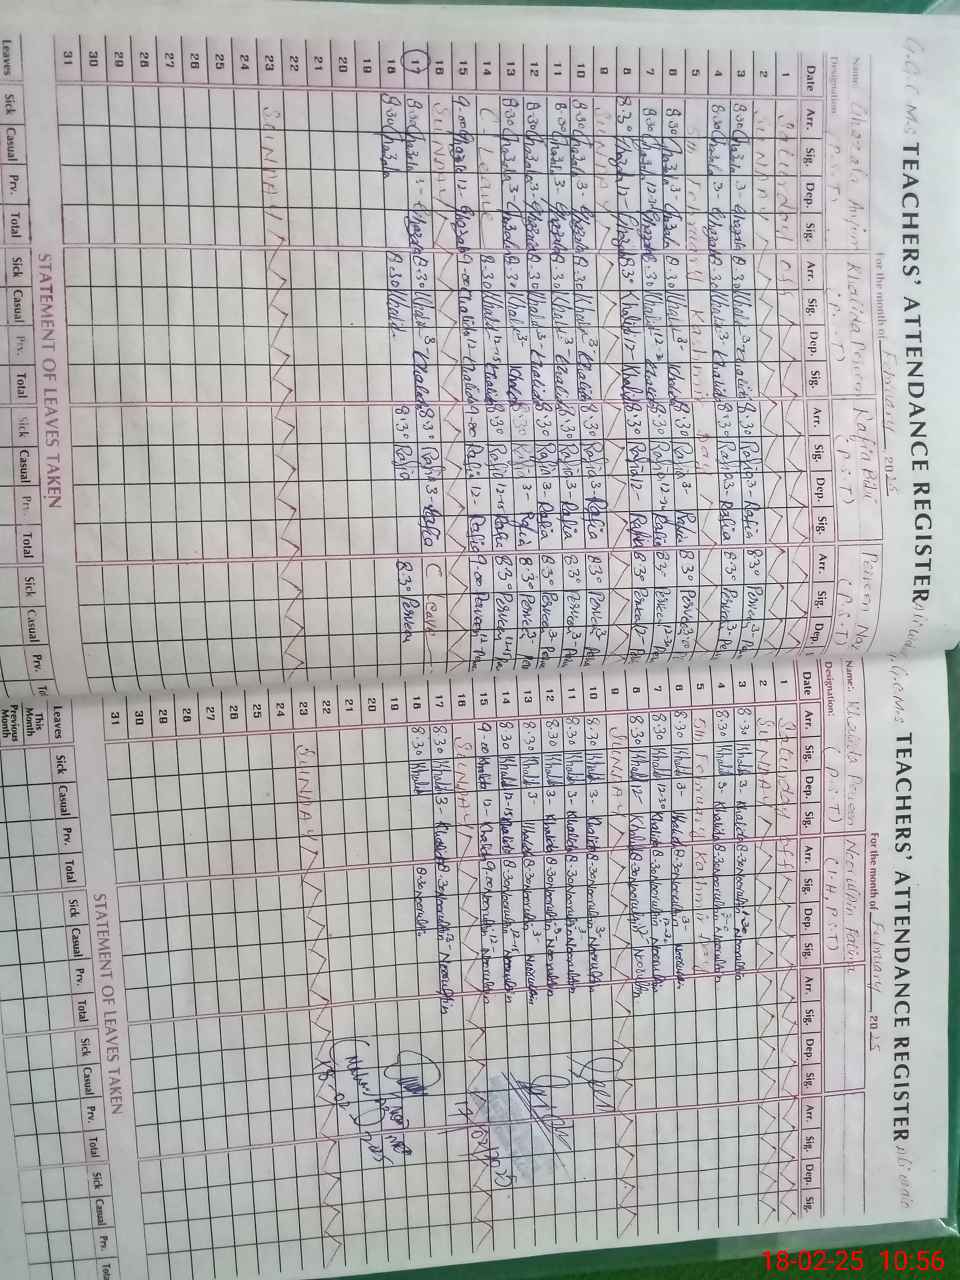 G.G.C.M.S TEACHERS' ATTENDANCE REGISTER
For the month of February 2025
Name: Ghazala Anjum Khalida Perveen Rafia Bibi Perveen
Designation (P.S.T) (P.S.T) (P.S.T) (P.S.T)
Date Arr. Sig. Dep. Sig. Arr. Sig. Dep. Sig. Arr. Sig. Dep. Sig. Arr. Sig. Dep.
1 Saturday off
2 SUNDAY
3 8.30 Ghazala 3- Ghazala 8.30 Khalida 3- Khalida 8.30 Rafia 3- Rafia 8.30 Perveen 3-
4 8.30 Ghazala 3- Ghazala 8.30 Khalida 3- Khalida 8.30 Rafia 3- Rafia 8.30 Perveen 3-
5 5th February Kashmir Day
6 8.30 Ghazala 3- Ghazala 8.30 Khalida 3- Khalida 8.30 Rafia 3- Rafia 8.30 Perveen
7 8.30 Ghazala 12-30 Ghazala 8.30 Khalida 12-30 Khalida 8.30 Rafia 12-30 Rafia 8.30 Perveen 12-30
8 8.30 Ghazala 12- Ghazala 8.30 Khalida 12- Khalida 8.30 Rafia 12- Rafia 8.30 Perveen 12-
9 SUNDAY
10 8.30 Ghazala 3- Ghazala 8.30 Khalida 3 Khalida 8.30 Rafia 3- Rafia 8.30 Perveen 3
11 8.30 Ghazala 3- Ghazala 8.30 Khalida 3 Khalida 8.30 Rafia 3- Rafia 8.30 Perveen 3-
12 8.30 Ghazala 3- Ghazala 8.30 Khalida 3- Khalida 8.30 Rafia 3- Rafia 8.30 Perveen 3-
13 8.30 Ghazala 3- Ghazala 8.30 Khalida 3- Khalida 8.30 3- Rafia 8.30 Perveen 3-
14 C-Leave 8.30 Khalida 12-15 Khalida 8.30 Rafia 12-15 Rafia 8.30 Perveen 12-15
15 9.00 Ghazala 12- Ghazala 9.00 Khalida 12- Khalida 9.00 Rafia 12- Rafia 9.00 Perveen 12-
16 SUNDAY
17 8.30 Ghazala 3- Ghazala 8.30 Khalida 3- Khalida 8.30 Rafia 3- Rafia C Leave
18 8.30 Ghazala 8.30 Khalida 8.30 Rafia 8.30 Perveen
19
20
21
22
23 SUNDAY
24
25
26
27
28
29
30
31
STATEMENT OF LEAVES TAKEN
Leaves Sick Casual Prv. Total Sick Casual Prv. Total Sick Casual Prv. Total Sick Casual Prv.
G.G.C.M.S TEACHERS' ATTENDANCE REGISTER
For the month of February 2025
Name: Khalida Perveen Noorulhin Fatima
Designation: (P.S.T)
Date Arr. Sig. Dep. Sig. Arr. Sig. Dep. Sig. Arr. Sig. Dep. Sig. Arr. Sig. Dep. Sig.
1 Saturday off
2 SUNDAY
3 8.30 Khalida 3- Khalida 8.30 Noorulhin 1.30 Noorulhin
4 8.30 Khalida 3- Khalida 8.30 Noorulhin 3- Noorulhin
5 5th February Kashmir Day
6 8.30 Khalida 3- Khalida 8.30 Noorulhin 3- Noorulhin
7 8.30 Khalida 12-30 Khalida 8.30 Noorulhin 12-30 Noorulhin
8 8.30 Khalida 12- Khalida 8.30 Noorulhin 12 Noorulhin
9 SUNDAY
10 8.30 Khalida 3- Khalida 8.30 Noorulhin 3- Noorulhin
11 8.30 Khalida 3- Khalida 8.30 Noorulhin 3 Noorulhin
12 8.30 Khalida 3- Khalida 8.30 Noorulhin 3 Noorulhin
13 8.30 Khalida 3- Khalida 8.30 Noorulhin 3- Noorulhin
14 8.30 Khalida 12-15 Khalida 8.30 Noorulhin 12-15 Noorulhin
15 9.00 Khalida 12- Khalida 9.00 Noorulhin 12- Noorulhin
16 SUNDAY
17 8.30 Khalida 3- Khalida 8.30 Noorulhin 3- Noorulhin
18 8.30 Khalida 8.30 Noorulhin
19
20
21
22
23 SUNDAY
24
25
26
27
28
29
30
31
17/02/2025
18-02-2025
STATEMENT OF LEAVES TAKEN
Leaves Sick Casual Prv. Total Sick Casual Prv. Total Sick Casual Prv. Total Sick Casual Prv. Total
This Month
Previous Month
18-02-25 10:56